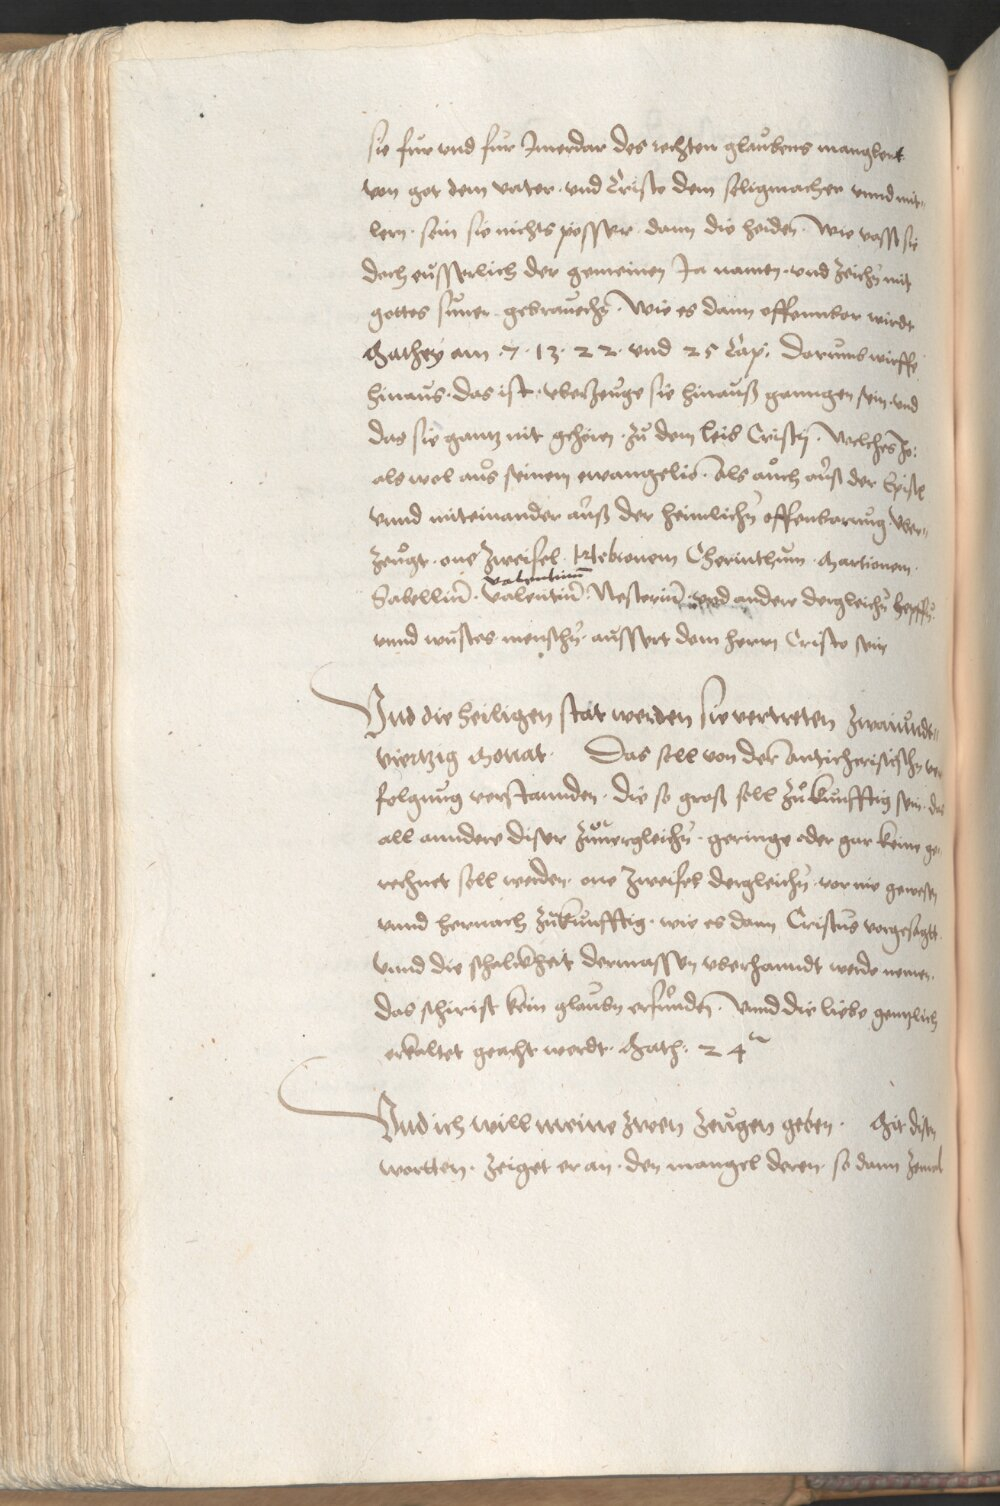 sie fur vnd fur Jmerdar des rechten glaubens manglent
von got dem vater · vnd Cristo dem seligmacher vnnd mit„
lern · sein sie nichts pesser · dann die heiden · Wie vasst sie
doch eusserlich der gemeinen Ja namen · vnd zeichn mit
gottes ... gebrauchn · Wie es dann offennbar wirdt
Mathey am · 7 · 13 · 22 · vnd 25 Cap: Darumb wirffe
hinaus · das ist · vberzeuge sie hinauß ganngen sein · vnd
das sie gantz nit gehören · zu dem leib Cristi · Welches Jo:
als wol aus seinem ewangelio · Als auch auß der Epistl
vnnd miteinander auß der heimlichn offenbarung vber„
zeugt · one zweifel · Hebionem Cherinthum · Martionem
Valentinum
Sabelliu · Valentiu · Nestoriu · vnd andere dergleichn
vnnd wustes menschn · aussert dem herrn Cristo sein
Vnd die heiligen stat werden sie vertreten zwaiundt„
viertzig Monat · Das soll von der Anticheristischn ver
folgnug verstannden · die so groß soll zukunfftig sein · das
all anndere diser zuuergleichn · geringe oder gar keine ge„
rechnet soll werden · one zweifel dergleichn · vor nie gewesen
vnnd hernach zukunfftig · wie es dann Cristus vorgesagtt
vnnd die schalckheit dermassen vberhanndt werde nemen ·
das schirist kein glaubn erfunden · Vnnd die liebe genntzlich
erkaltet geacht werdt · Math: 24
Vnd ich will meine zwen zeugen geben · Mit disen
wortten · zeiget er an · den manngel deren · so dann zemal